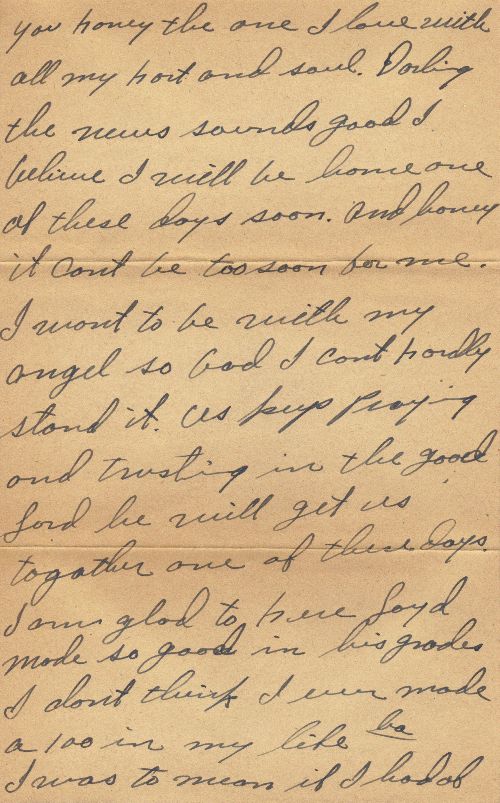 you honey the one I love with
all my hart and soul. Darling
the news sounds good I
believe I will be home one
of these days soon. And honey
it cant be too soon for me.
I want to be with my
angel so bad I cant hardly
stand it. Us keep praying
and trusting in the good
Lord he will get us
together one of these days.
I am glad to here Loyd
made so good in his grades
I dont think I ever made
a 100 in my life ha
I was to mean if I had of